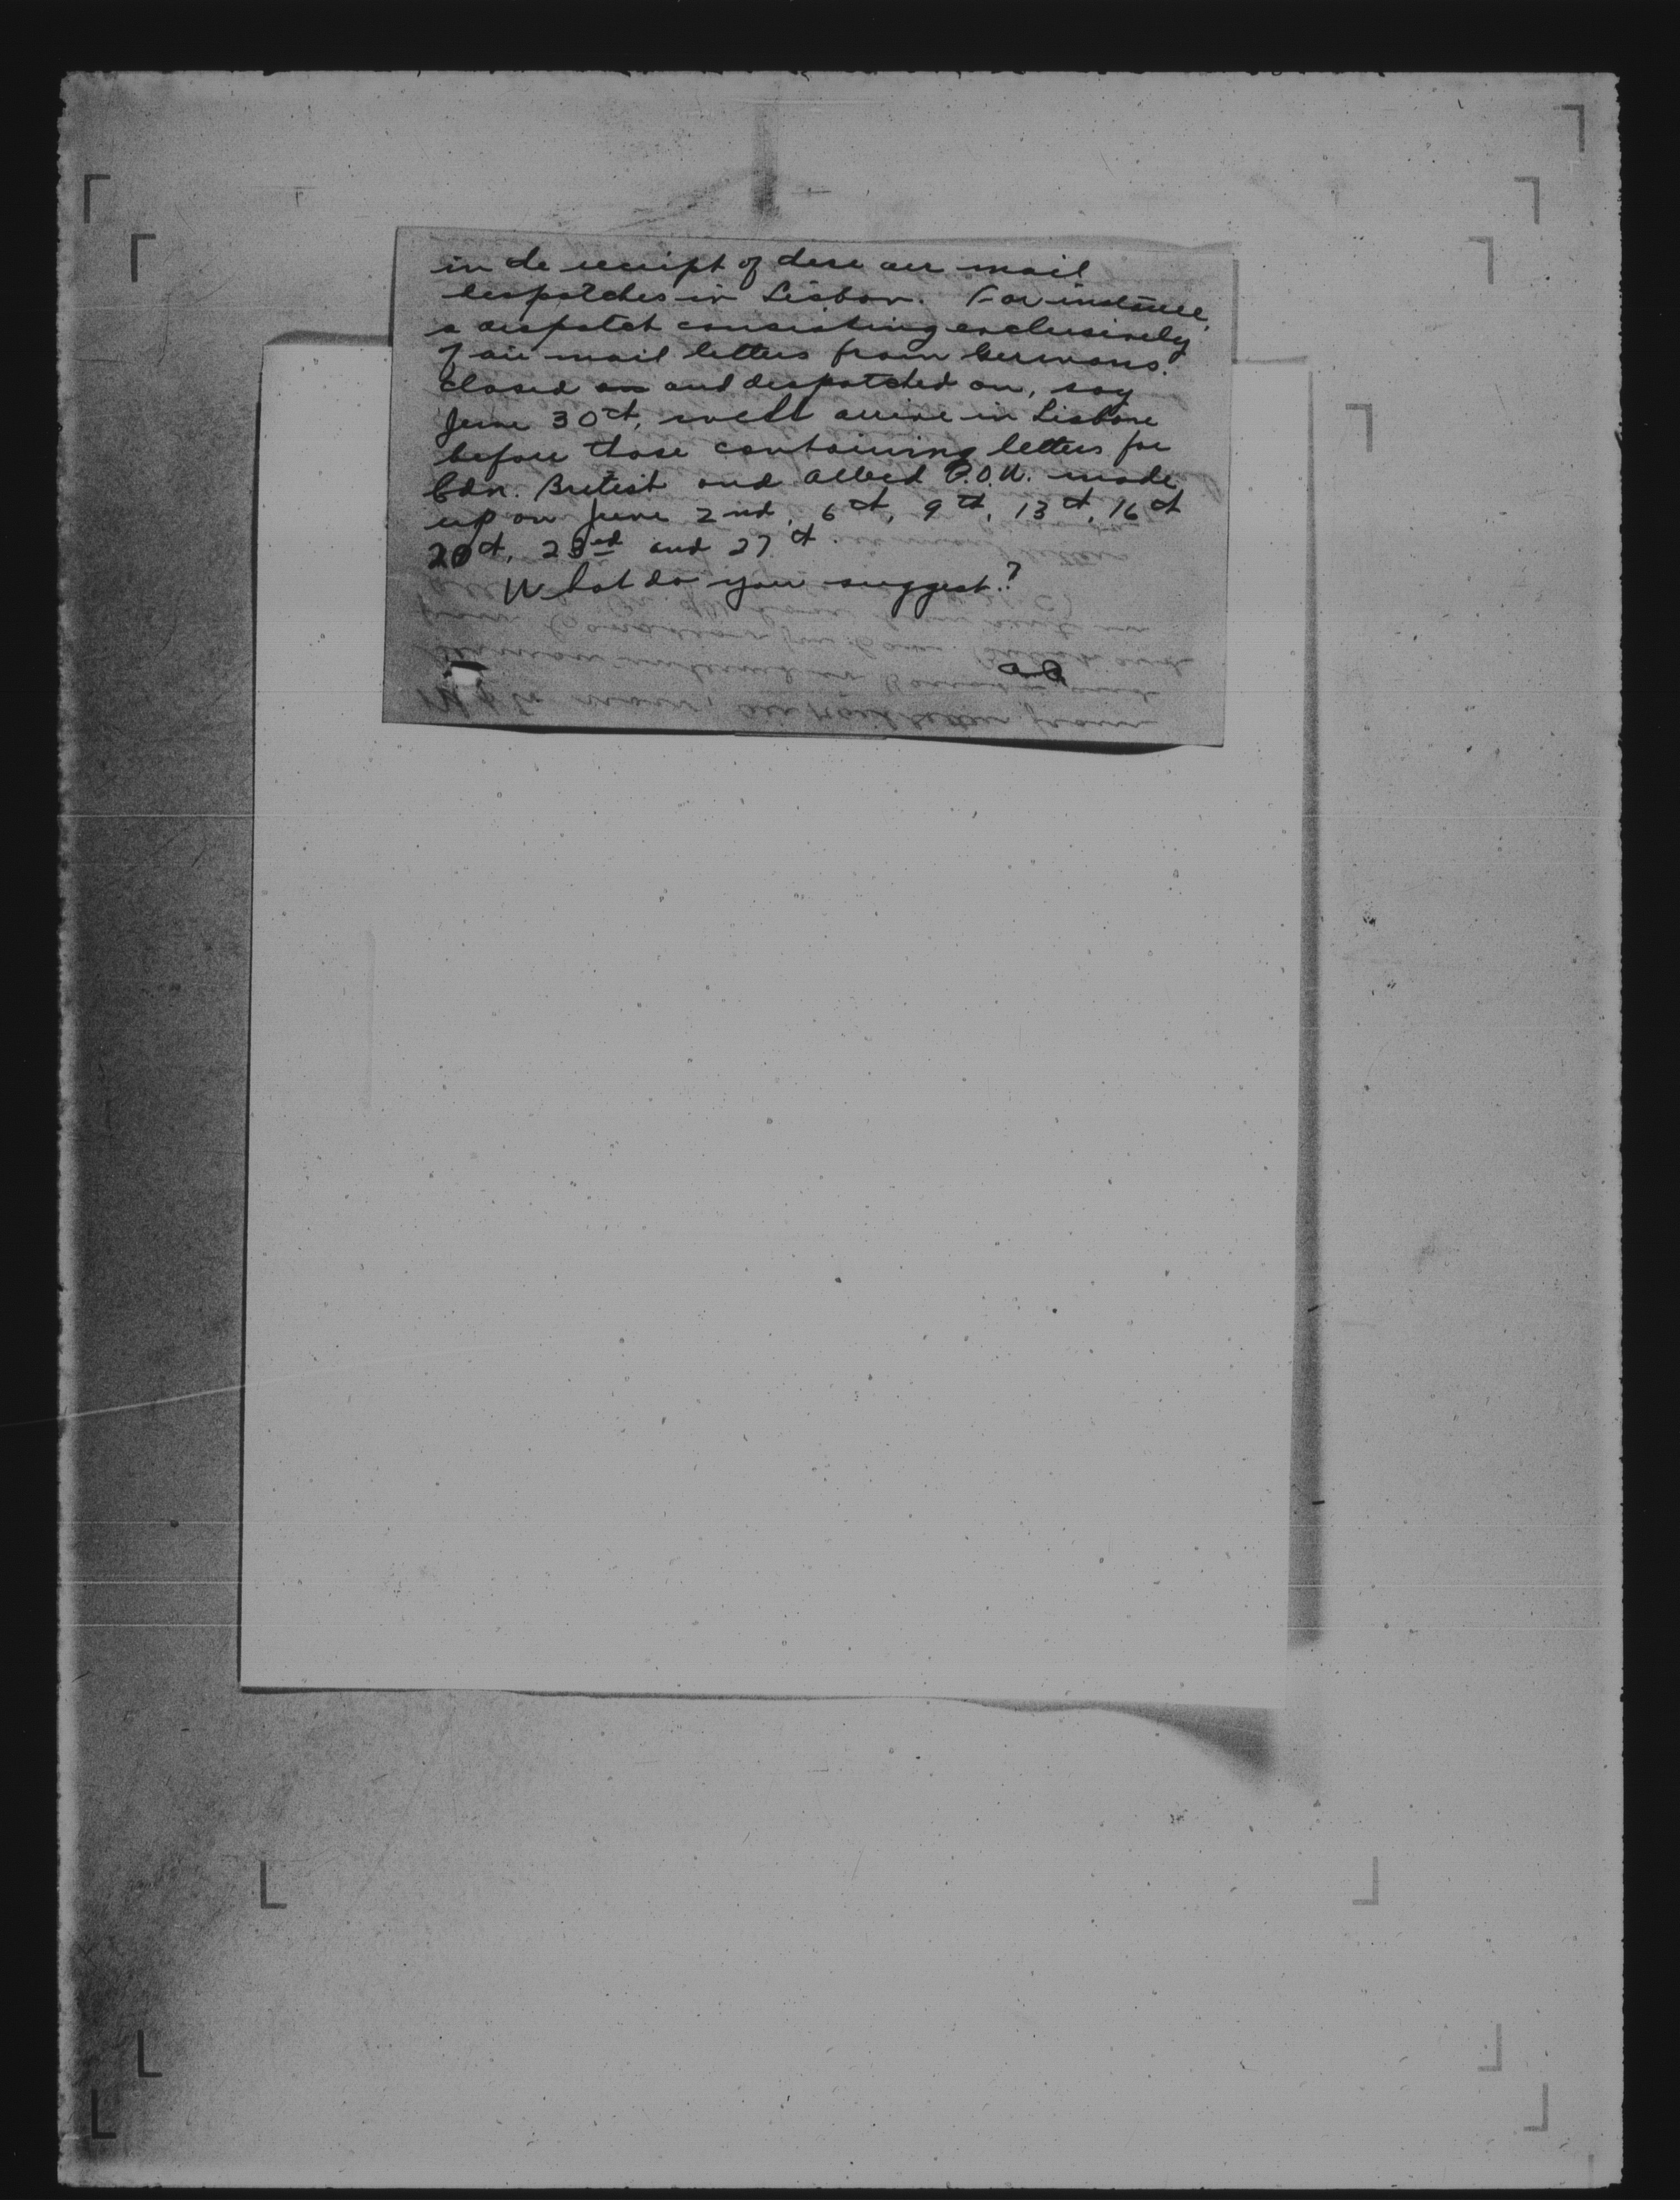 in the receipt of these air mail
despatches in Lisbon. For instance,
a despatch consisting exclusively
of air mail letters from Germans.
closed on and despatched on, say
June 30th, will arrive in Lisbon
before those containing letters for
Cdn. British and Allied P.O.W. made
up on June 2nd, 6th, 9th, 13th, 16th
20th, 23rd and 27th.
What do you suggest?